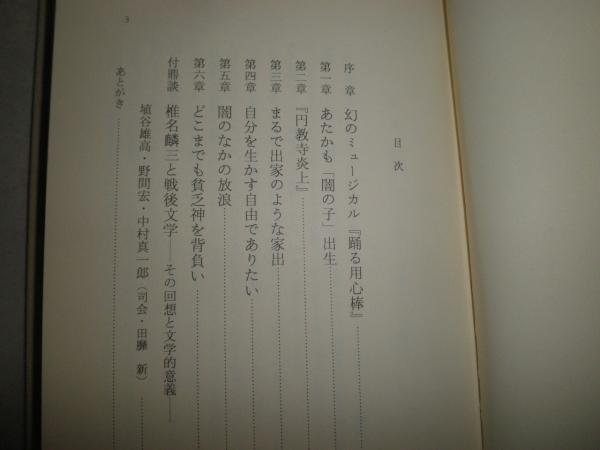 目次
序章 幻のミュージカル『踊る用心棒』
第一章 あたかも「闇の子」出生
第二章 『円教寺炎上』
第三章 まるで出家のような家出
第四章 自分を生かす自由でありたい
第五章 闇のなかの放浪
第六章 どこまでも貧乏神を背負い
付鼎談 椎名麟三と戦後文学――その回想と文学的意義――
埴谷雄高・野間宏・中村真一郎(司会・田靡 新)
あとがき
3